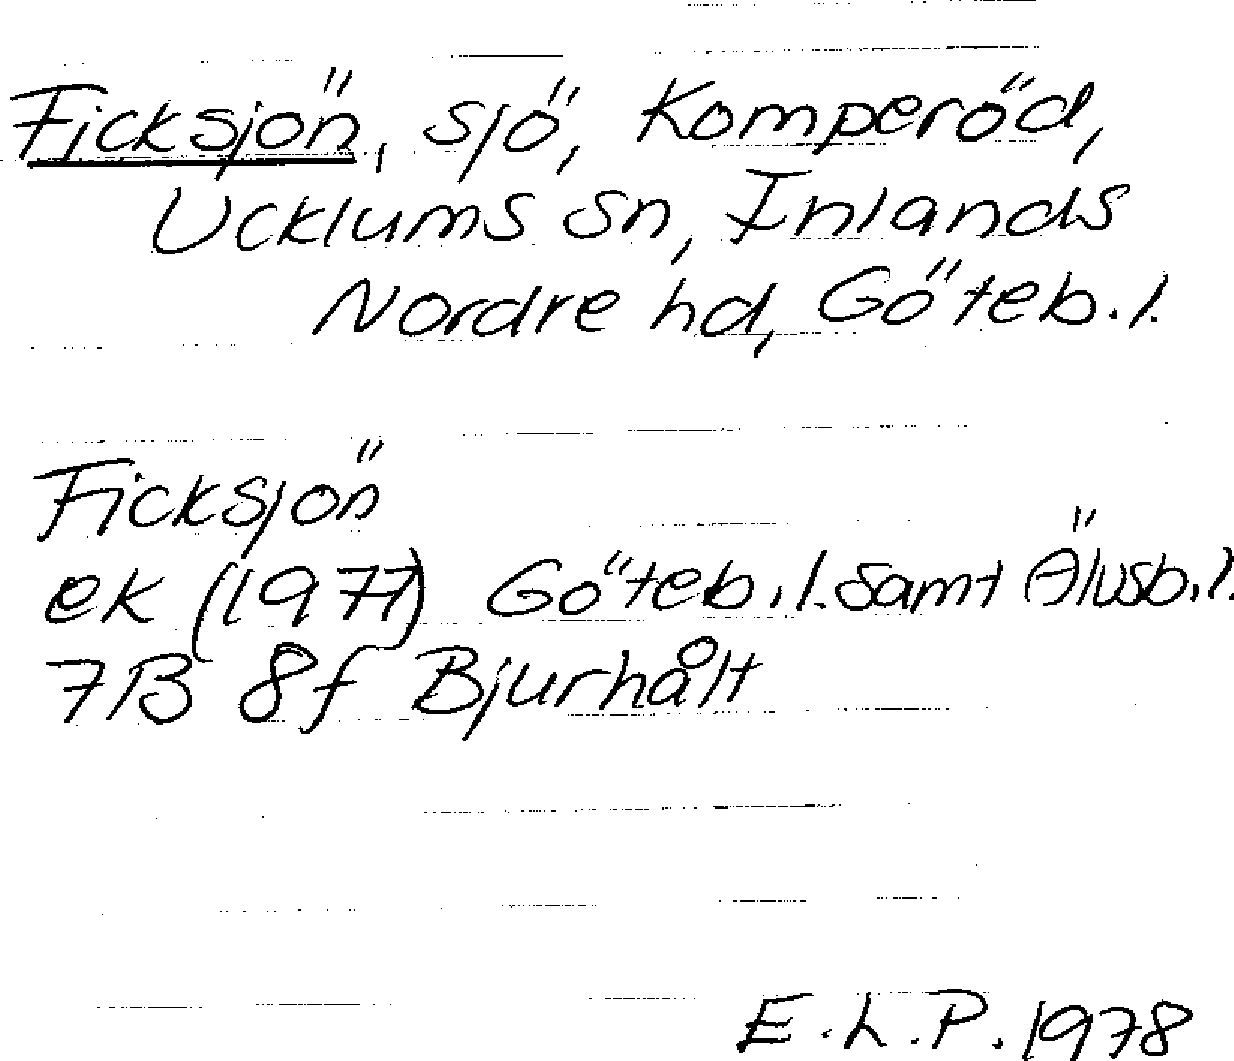 Ficksjön, sjö, Komperöd,
Ucklums sn, Inlands
Nordre hd, Göteb.l.
Ficksjön
ek (1977) Göteb.l. samt Älvsb.l.
7B 8f Bjurhålt
E.L.P. 1978